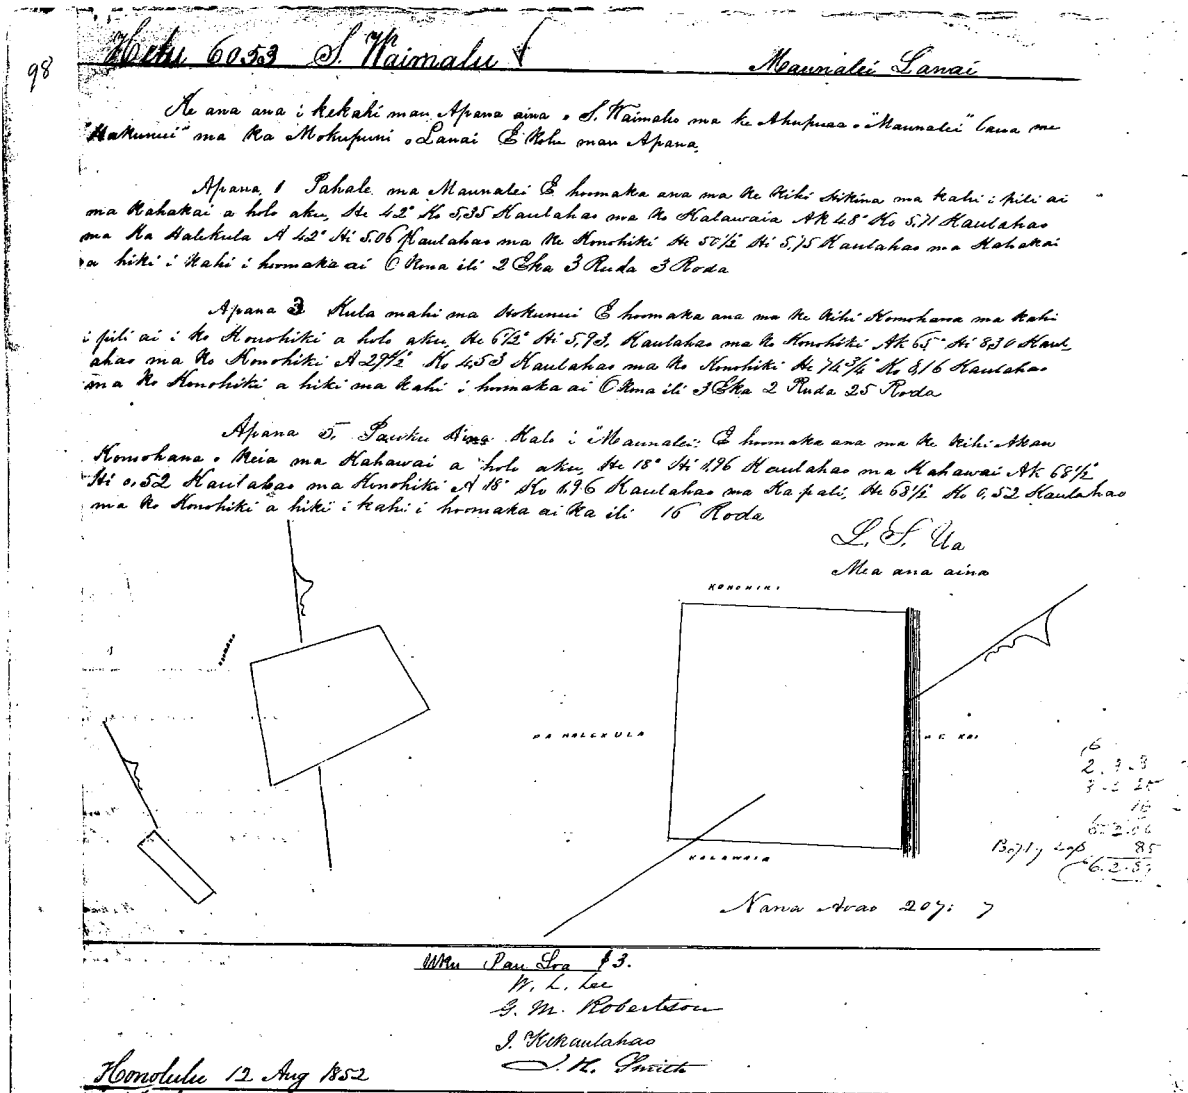 98
Helu 6053 S. Waimalu
Maunalei Lanai
Ke ana ana i kekahi mau Apana aina o S. Waimalu ma ke Ahupuaa o "Maunalei" laua me
"Hokunui" ma ka Mokupuni o Lanai E Kolu mau Apana.
Apana 1 Pahale ma Maunalei E hoomaka ana ma ke kihi Hikina ma kahi i pili ai
ma Kahakai a holo aku, He 42° Ko 5,35 Kaulahao ma ko Kalawaia Ak 48° Ko 5,71 Kaulahao
ma Ka Halekula A 42° Hi 5.06 Kaulahao ma ke Konohiki He 50½ Hi 5,75 Kaulahao ma Kahakai
a hiki i kahi i hoomaka ai O Kona ili 2 Eka 3 Ruda 3 Roda
Apana 3 Kula mahi ma Hokunui E hoomaka ana ma ke kihi Komohana ma kahi
i pili ai i ko Konohiki a holo aku, He 61½ Hi 5,93. Kaulahao ma ko Konohiki Ak 65° Hi 8,30 Kaul_
ahao ma ko Konohiki A 29½ Ko 4,53 Kaulahao ma ko Konohiki He 74¾° Ko 8,16 Kaulahao
ma ko Konohiki a hiki ma kahi i hoomaka ai O Kona ili 3 Eka 2 Ruda 25 Roda
Apana 5. Pauku Aina Kalo i "Maunalei" E hoomaka ana ma ke kihi Akau
Komohana o Keia ma Kahawai a holo aku, He 18° Hi 1.96 Kaulahao ma Kahawai Ak 68½
Hi 0,52 Kaulahao ma Konohiki A 18° Ko 1.96 Kaulahao ma Ka pali, He 68½ Ko 0,52 Kaulahao
ma ko Konohiki a hiki i kahi i hoomaka ai Ka ili 16 Roda
L. S. Ua
Mea ana aina
KONOHIKI
PA HALEKULA
KE KAI
KALAWAIA
2. 3. 3
3. 2. 25
16
85
Nana Aoao 207: 7
Uku Pau Loa $3.
W. L. Lee
G. M. Robertson
J. Kekaulahao
J. H. Smith
Honolulu 12 Aug 1852